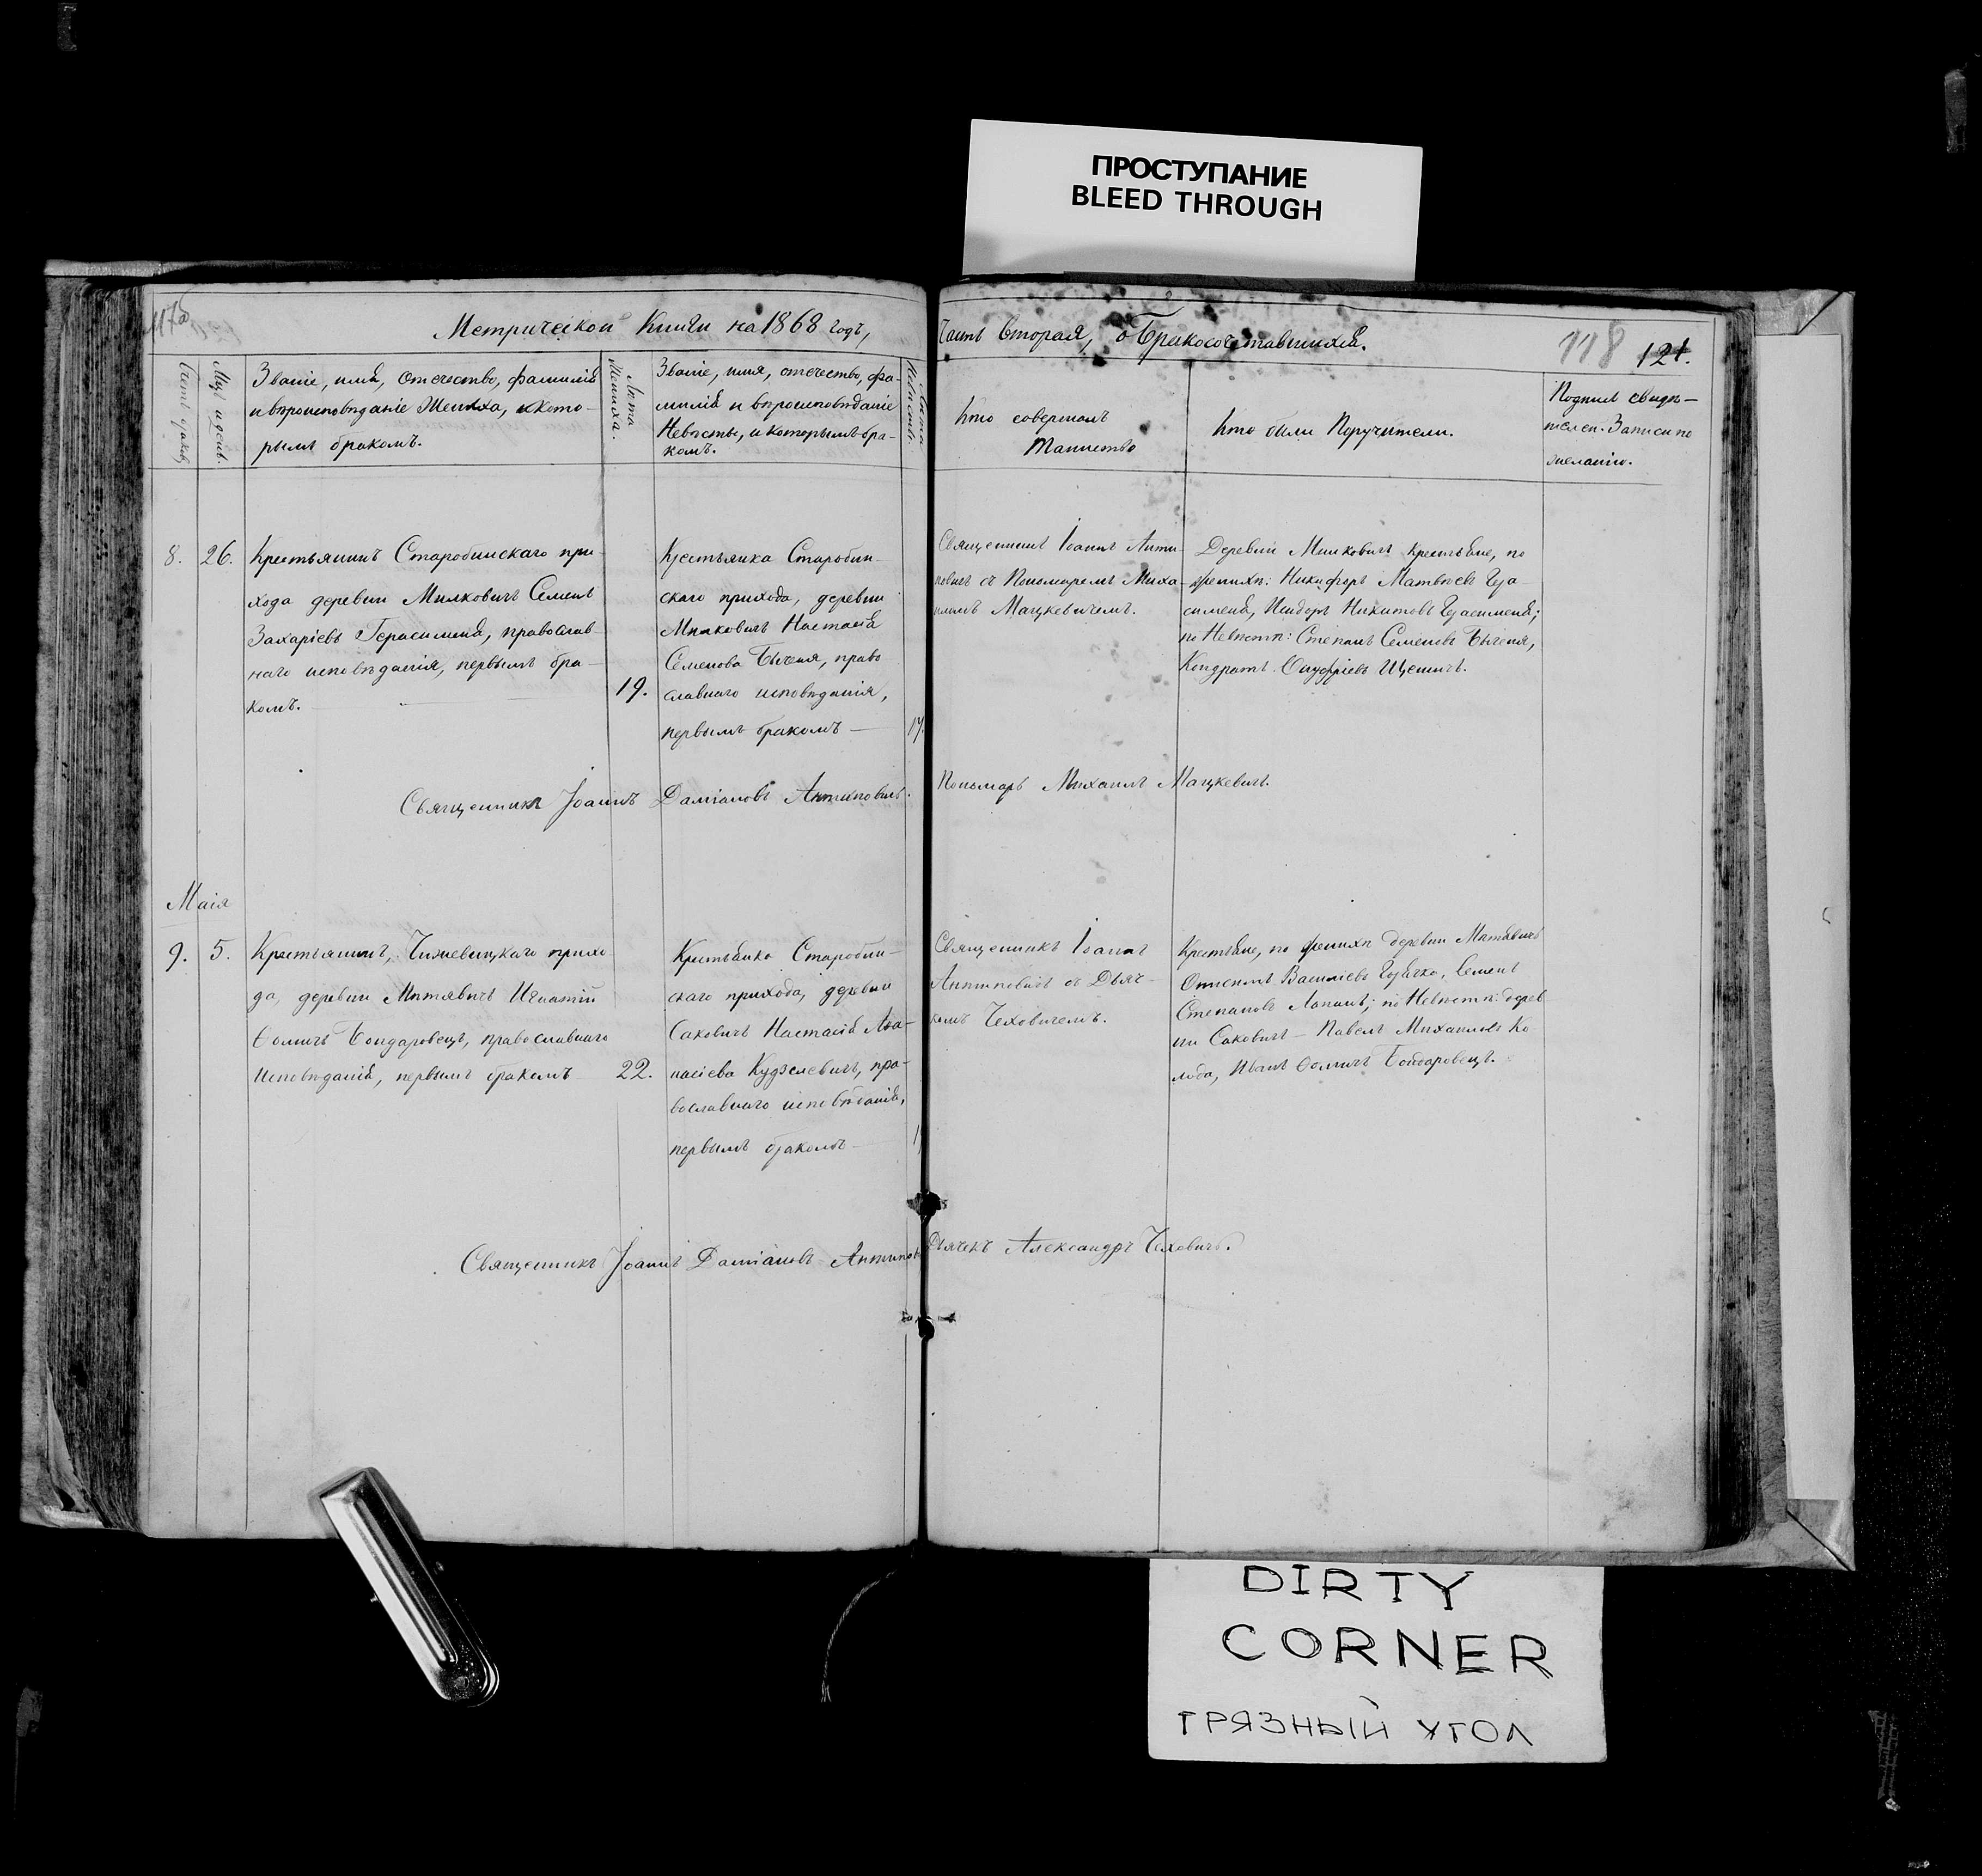 ПРОСТУПАНИЕ
BLEED THROUGH
117об
Метрической Книги на 1868 годъ,
Часть вторая, о бракосочетавшихся.
118 121.
Счетъ браковъ
Мцъ и день.
Званіе, имя, отечество, фамилія
и вѣроисповѣданіе Жениха, и кото-
рымъ бракомъ.
Лѣта
Жениха.
Званіе, имя, отечество, фа-
милія и вѣроисповѣданіе
Невѣсты, и которымъ бра-
комъ.
Лѣта
Невѣсты.
Кто совершалъ
Таинство
Кто были Поручители.
Подпись свидѣ-
телей. Записи по
желанію.
8. 26.
Крестьянинъ Старобинскаго при-
хода деревни Милковичъ Семенъ
Захаріевъ Герасименя, православ
наго исповѣданія, первымъ бра-
комъ.
19.
Крестьянка Старобин-
скаго прихода, деревни
Милковичъ Настасія
Семенова Быченя, право
славнаго исповѣданія,
первымъ бракомъ —
17.
Священникъ Іоаннъ Анти-
повичъ съ Пономаремъ Миха-
иломъ Мацкевичемъ.
Деревни Милковичъ крестьяне, по
женихѣ: Никифоръ Матвѣевъ Гера-
сименя, Исидоръ Никитовъ Герасименя;
по Невѣстѣ: Степанъ Семеновъ Быченя,
Кондратъ Онуфріевъ
Священникъ Іоаннъ Даміановъ Антиповичъ.
Пономарь Михаилъ Мацкевичъ.
Маія
9. 5.
Крестьянинъ, Чижевицкаго прихо
да, деревни Мѣтявичъ Игнатій
Ѳомичъ Бондаровецъ, православнаго
исповѣданія, первымъ бракомъ
22.
Крестьянка Старобин-
скаго прихода, деревни
Саковичъ Настасія Аѳа-
насіева Кудзелевичъ, пра-
вославнаго исповѣданія,
первымъ бракомъ —
Священникъ Іоаннъ
Антиповичъ съ Дьяч-
комъ Чеховичемъ.
Крестьяне, по женихѣ деревни Мѣтявичъ
Онисимъ Василіевъ Семенъ
Степановъ Лапанъ; по Невѣстѣ: дерев
ни Саковичъ — Павелъ Михаиловъ Ко
лода, Иванъ Ѳомичъ Бондаровецъ.
Священникъ Іоаннъ Даміановъ Антипов
Дьячекъ Александръ Чеховичъ.
DIRTY
CORNER
ГРЯЗНЫЙ УГОЛ